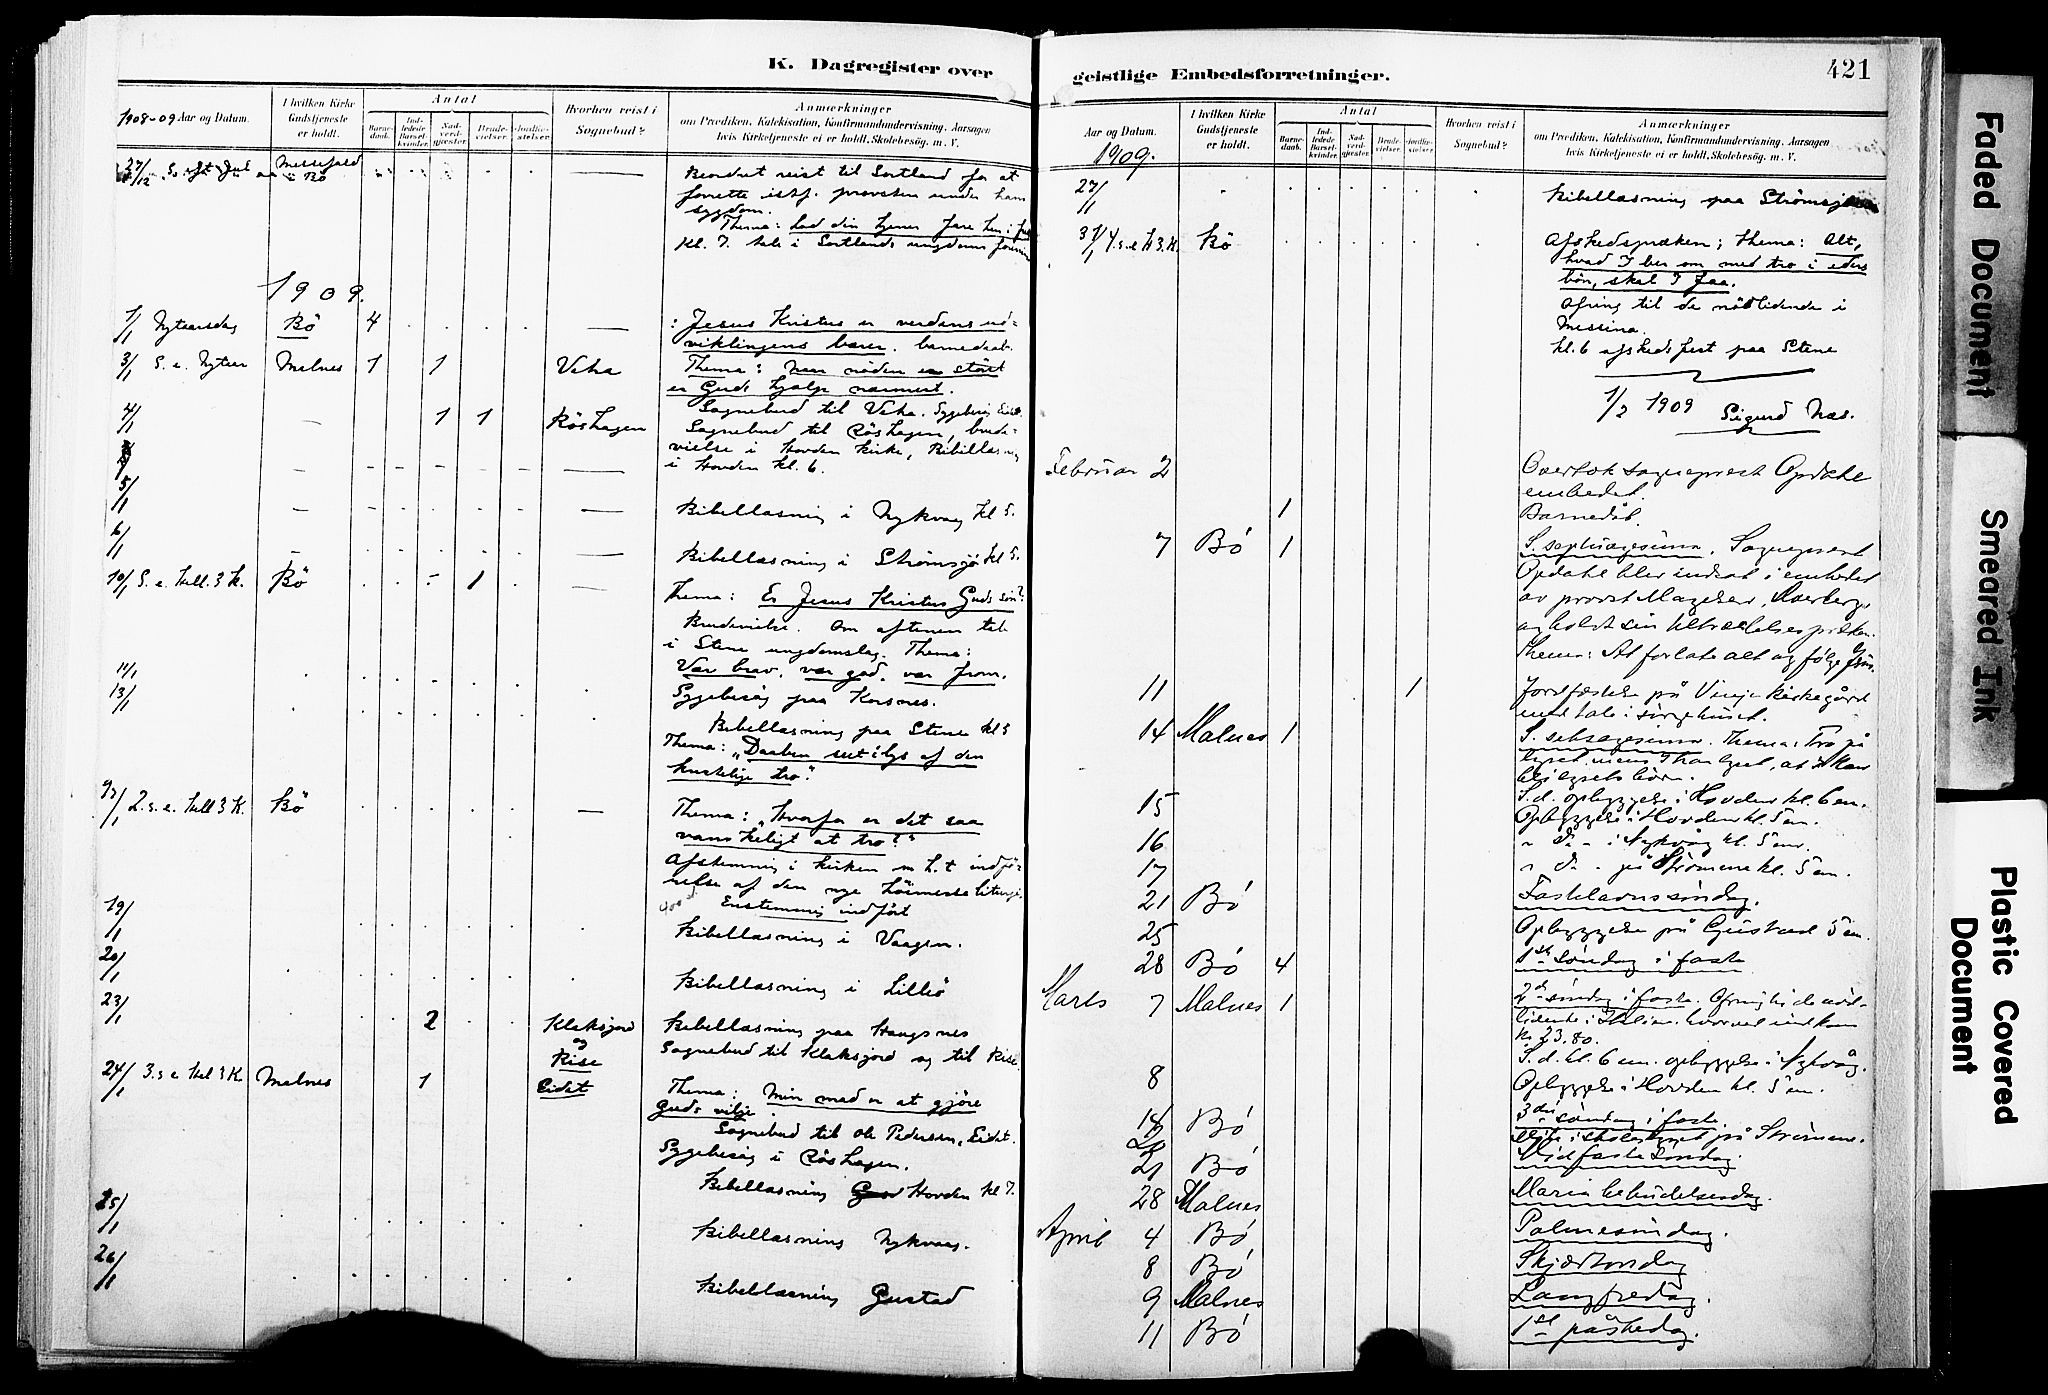 K. Dagregister over
1908-09 Aar og Datum.
I hvilken Kirke Gudstjeneste er holdt.
Antal
Barnedaab.
Indledede Barselkvinder.
Nadverdgjæster.
Brudevielser.
Jordfæstelser.
Hvorhen reist i Sognebud?
Anmærkninger
om Prædiken, Katekisation, Konfirmandundervisning, Aarsagen
hvis Kirketjeneste ei er holdt, Skolebesøg, m. V.
27/12 S. eft. Jul Messefald i Bö
Beordret reist til Sortland for at
forrette istf. provsten under hans
sygdom.
Thema: Lad din tjener fare hen i
Kl. 7. tale i Sortlands ungdoms
1909.
1/1 Nytaarsdag Bö 4 : Jesus Kristus er verdens ud-
viklingens bærer. barnedaab.
3/1 S. e. Nytaar Malnes 1 1 Thema: Naar nöden er störst
er Guds hjælp nærmest.
4/1 1 1 Röshagen Sognebud til
Sognebud til Röshagen, brude-
vielse i Hovden kirke, Bibellæsning
i Hovden kl. 6.
5/1 Bibellæsning i Nykvaag kl 5.
6/1 Bibellæsning i Strömsjö kl 5.
10/1 S. e. Hell. 3 K. Bö 1 Thema: Er Jesus Kristus Guds sön?
Brudevielse. Om aftenen tale
i Stene ungdomslag. Thema:
Vær brav, vær god, vær from.
11/1 Sygebesög paa Korsnes.
13/1 Bibellæsning paa Stene kl 5
Thema: "Daaben set i lys af den
kristelige tro".
17/1 2. s. e. Hell 3 K. Bö Thema: "Hvorfor er det saa
vanskeligt at tro?"
Afstemning i kirken m. h. t. indfö-
relse af den nye höimesseliturgi.
Enstemmig indfört
19/1 Bibellæsning i Vaagen.
20/1 Bibellæsning i Lillöi
23/1 2 Klaksjord og Rise Bibellæsning paa Haugsnes
Sognebud til Klaksjord og til Rise
24/1 3. s e Hel 3 K. Malnes 1 Eidet Thema: Min mad er at gjöre
Guds vilje.
Sognebud til Ole Pedersen, Eidet.
Sygebesög i Röshagen.
Bibellæsning Hovden kl 7.
25/1 Bibellæsning Nykvaag.
26/1 Bibellæsning Gustad
geistlige Embedsforretninger.
421
Aar og Datum.
1909.
I hvilken Kirke Gudstjeneste er holdt.
Antal
Barnedaab.
Indledede Barselkvinder.
Nadverdgjæster.
Brudevielser.
Jordfæstelser.
Hvorhen reist i Sognebud?
Anmærkninger
om Prædiken, Katekisation, Konfirmandundervisning, Aarsagen
hvis Kirketjeneste ei er holdt, Skolebesøg, m. V.
27/1 Bibellæsning paa
31/1 4. s. e H 3. K. Bö Afskedspræken; thema: Alt,
hvad I ber om med tro i eders
bön, skal I faa.
Ofring til de nödlidende i
Messina.
kl. 6 afskedsfest paa Stene
1/2 1909 Sigurd Næs.
Februar 2 Overtok sogneprest Opdahl
embedet.
1 Barnedåb.
7 Bø 1 S. septuagesima. Sogneprest
Opdahl blev indsat i embedet
av provst Magelssen,
og holdt sin tiltrædelsespræken.
Thema: At forlate alt og følge Jesus.
11 1 Jordfæstelse på Vinje kirkegård
med tale i sørgehuset.
14 Malnes 1 S. seksagesima. Thema: Tro på
lyset, mens I har lyset, at I kan
bli lysets børn.
S. d. opbyggelse i Hovden kl. 6 em.
15 Opbyggelse i Hovden kl. 5 em.
16 " d° - i Nykvåg kl. 5 em.
17 " d° - på Strømmene kl. 5 em.
21 Bø Fastelavnssøndag.
25 Opbyggelse på Gustad 5 em.
28 Bø 4 1ste søndag i faste
Marts 7 Malnes 1 2den søndag i faste. Ofring til de nød-
lidende i Italien, hvorved indkom
kr 23.80.
S. d. kl. 6 em. opbyggelse i Nykvåg.
8 Opbyggelse i Hovden kl. 5 em.
14 Bø 3die søndag i faste.
20 Møte i skolestyret på Strømmene.
21 Bø Midfastesøndag.
28 Malnes Maria budskabsdag.
April 4 Bø Palmesøndag.
8 Bø Skjærtorsdag
9 Malnes Langfredag.
11 Bø 1ste påskedag.
Faded Document
Smeared Ink
Plastic Covered Document